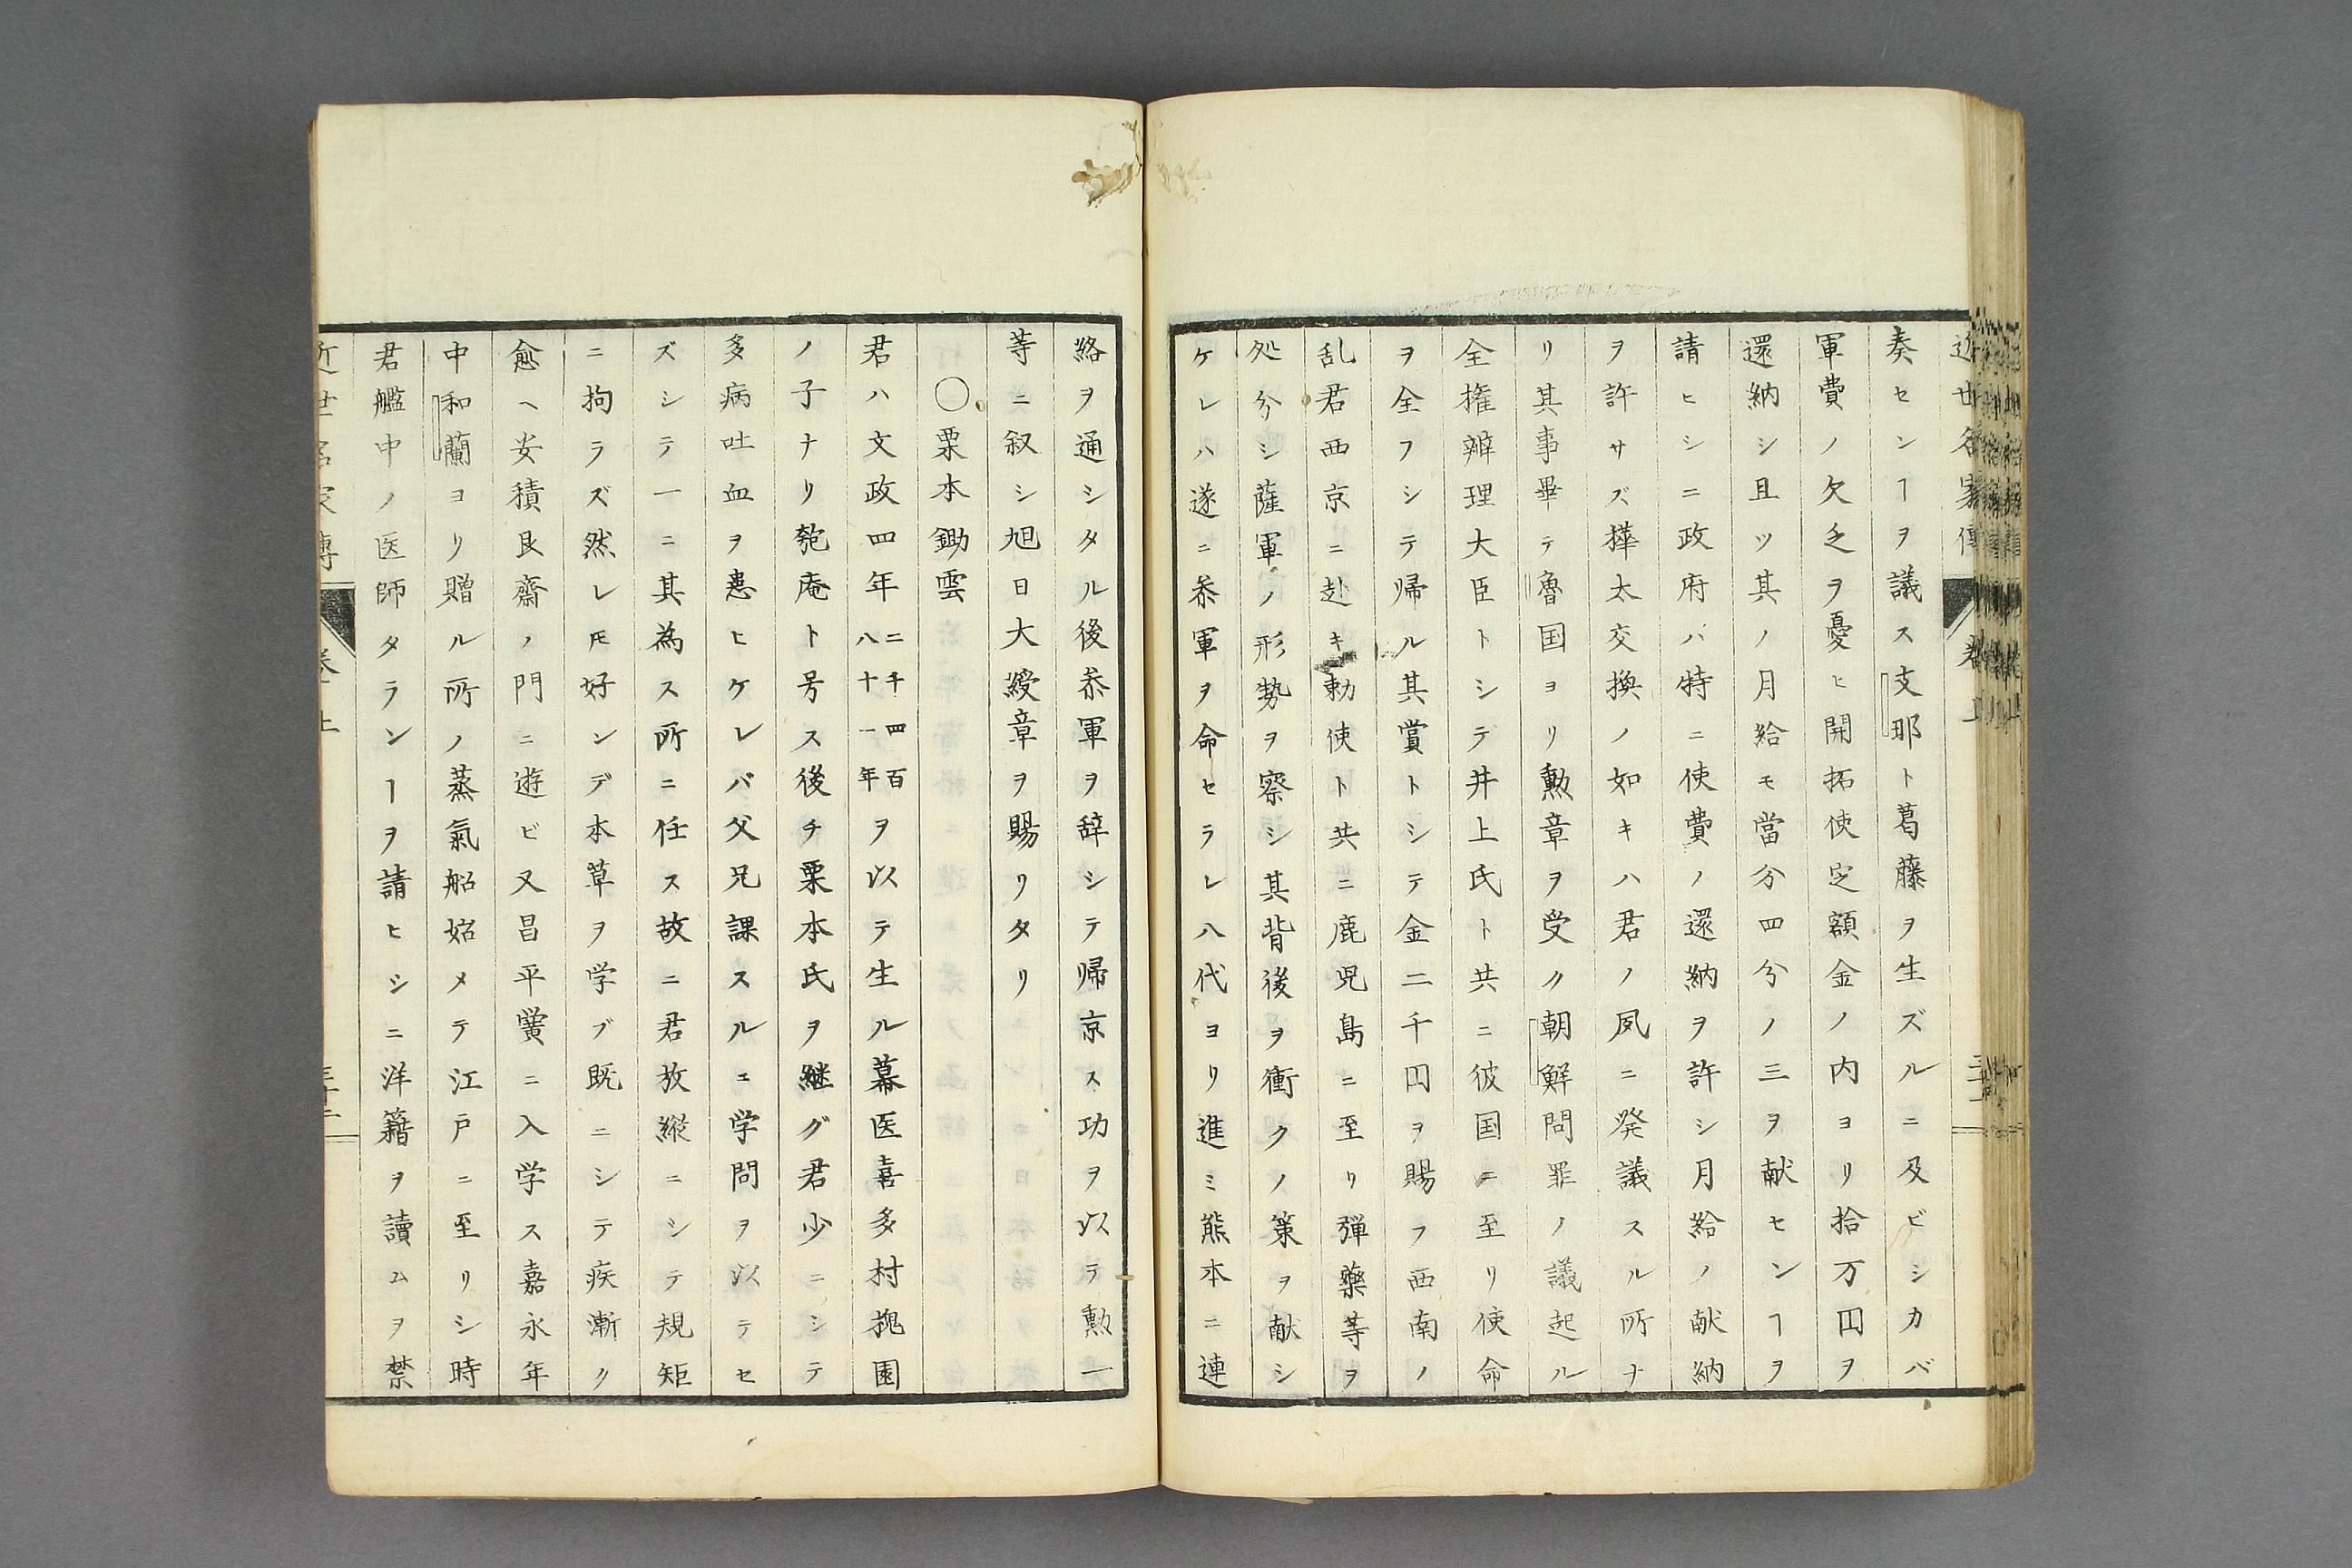 奏セン𬼀ヲ議ス支那ト葛藤ヲ生ズルニ及ビシカバ
軍費ノ欠乏ヲ憂ヒ開拓使定額金ノ内ヨリ拾万円ヲ
還納シ且ツ其ノ月給モ當分四分ノ三ヲ献セン𬼀ヲ
請ヒシニ政府ハ特ニ使費ノ還納ヲ許シ月給ノ献納
ヲ許サズ樺太交換ノ如キハ君ノ夙ニ発議スル所ナ
リ其事畢テ魯国ヨリ勲章ヲ受ク朝鮮問罪ノ議起ル
全権辨理大臣トシテ井上氏ト共ニ彼国ニ至リ使命
ヲ全フシテ帰ル其賞トシテ金二千円ヲ賜フ西南ノ
乱君西京ニ赴キ勅使ト共ニ鹿児島ニ至リ弾藥等ヲ
処分シ薩軍ノ形勢ヲ察シ其背後ヲ衝クノ策ヲ献シ
ケレハ遂ニ叅軍ヲ命セラレ八代ヨリ進ミ熊本ニ連
絡ヲ通シタル後叅軍ヲ辞シテ帰京ス功ヲ以テ勲一
等ニ叙シ旭日大綬章ヲ賜リタリ
〇栗本鋤雲
君ハ文政四年二千四百八十一年ヲ以テ生ル幕医喜多村槐園
ノ子ナリ匏庵ト号ス後チ栗本氏ヲ継グ君少ニシテ
多病吐血ヲ患ヒケレバ父兄課スルエ学問ヲ以テセ
ズシテ一ニ其為ス所ニ任ス故ニ君放縦ニシテ規矩
ニ拘ラズ然レ𪜈好ンデ本草ヲ学ブ既ニシテ疾漸ク
愈ヘ安積艮齋ノ門ニ遊ビ又昌平黌ニ入学ス嘉永年
中和蘭ヨリ贈ル所ノ蒸氣船始メテ江戸ニ至リシ時
君艦中ノ医師タラン𬼀ヲ請ヒシニ洋籍ヲ讀ムヲ禁